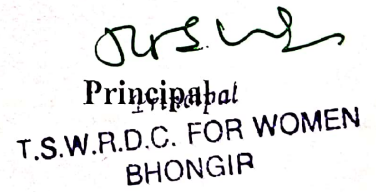 Principal
Principal
T.S.W.R.D.C. FOR WOMEN
BHONGIR